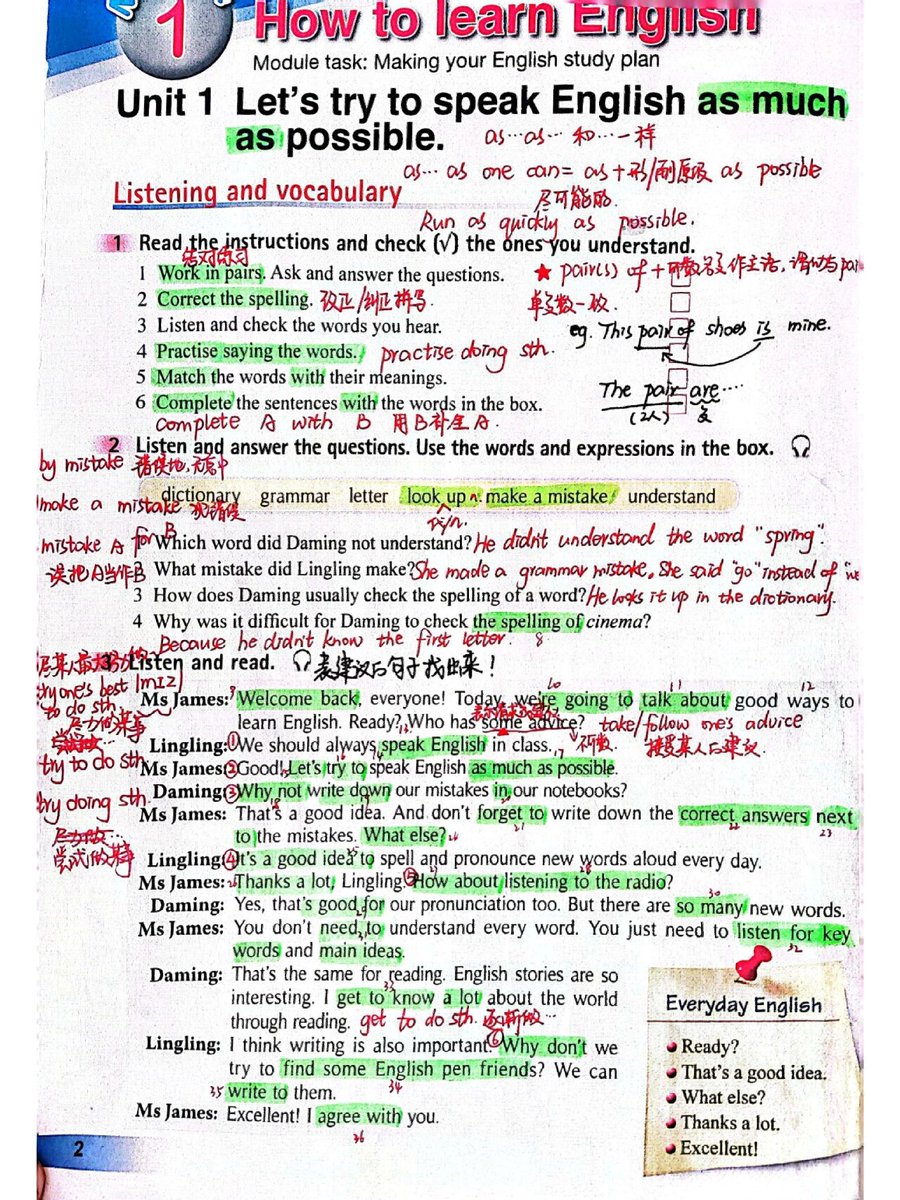 1 How to learn English
Module task: Making your English study plan
Unit 1 Let's try to speak English as much
as possible.
as…as… 和…一样
as… as one can = as + 形/副原级 as possible
尽可能的.
Listening and vocabulary
Run as quickly as possible.
1 Read the instructions and check (√) the ones you understand.
结对练习
1 Work in pairs. Ask and answer the questions.
★ pair(s) of + 可数名复作主语, 谓动与pair
2 Correct the spelling. 改正/纠正拼写.
单复数一致.
3 Listen and check the words you hear.
eg. This pair of shoes is mine.
4 Practise saying the words. practise doing sth.
5 Match the words with their meanings.
The pair are····
(2人) 复
6 Complete the sentences with the words in the box.
complete A with B 用B补全A.
2 Listen and answer the questions. Use the words and expressions in the box.
by mistake 错误地,无意中
dictionary grammar letter look up make a mistake understand
make a mistake 犯错误
pi/n.
mistake A for B
误把A当作B
1 Which word did Daming not understand? He didn't understand the word "spring".
2 What mistake did Lingling make? She made a grammar mistake. She said "go" instead of
3 How does Daming usually check the spelling of a word? He looks it up in the dictionary.
4 Why was it difficult for Daming to check the spelling of cinema?
Because he didn't know the first letter. 8
3 Listen and read. 表建议的句子找出来!
尽某人最大努力做
try one's best
to do sth
尽力做某事
try to do sth
try doing sth.
尽力做…
尝试做某事
Ms James: Welcome back, everyone! Today we're going to talk about good ways to
learn English. Ready? Who has some advice? take/follow one's advice
不可数. 接受某人的建议.
Lingling: ① We should always speak English in class.
Ms James: ② Good! Let's try to speak English as much as possible.
Daming: ③ Why not write down our mistakes in our notebooks?
Ms James: That's a good idea. And don't forget to write down the correct answers next
to the mistakes. What else?
Lingling: ④ It's a good idea to spell and pronounce new words aloud every day.
Ms James: Thanks a lot, Lingling. ⑤ How about listening to the radio?
Daming: Yes, that's good for our pronunciation too. But there are so many new words.
Ms James: You don't need to understand every word. You just need to listen for key
words and main ideas.
Daming: That's the same for reading. English stories are so
interesting. I get to know a lot about the world
through reading. get to do sth. 逐渐做…
Lingling: I think writing is also important. ⑥ Why don't we
try to find some English pen friends? We can
write to them.
Ms James: Excellent! I agree with you.
Everyday English
• Ready?
• That's a good idea.
• What else?
• Thanks a lot.
• Excellent!
2